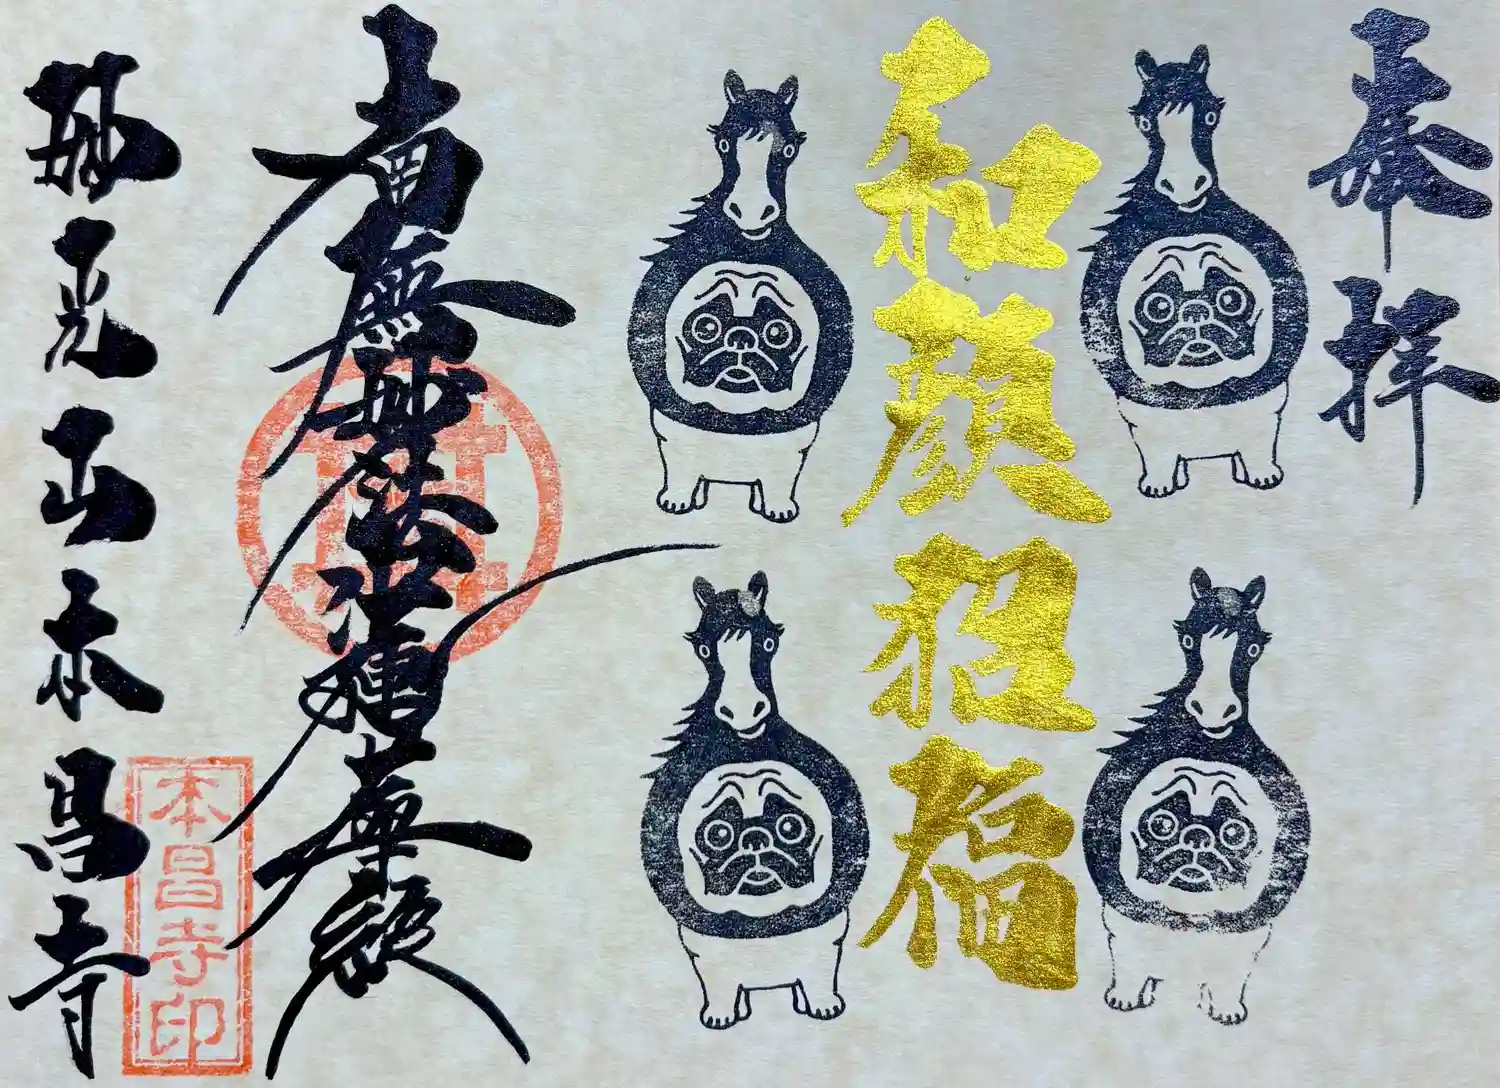 奉拝
和顔招福
南無妙法蓮華経
妙光山本昌寺
本昌寺印